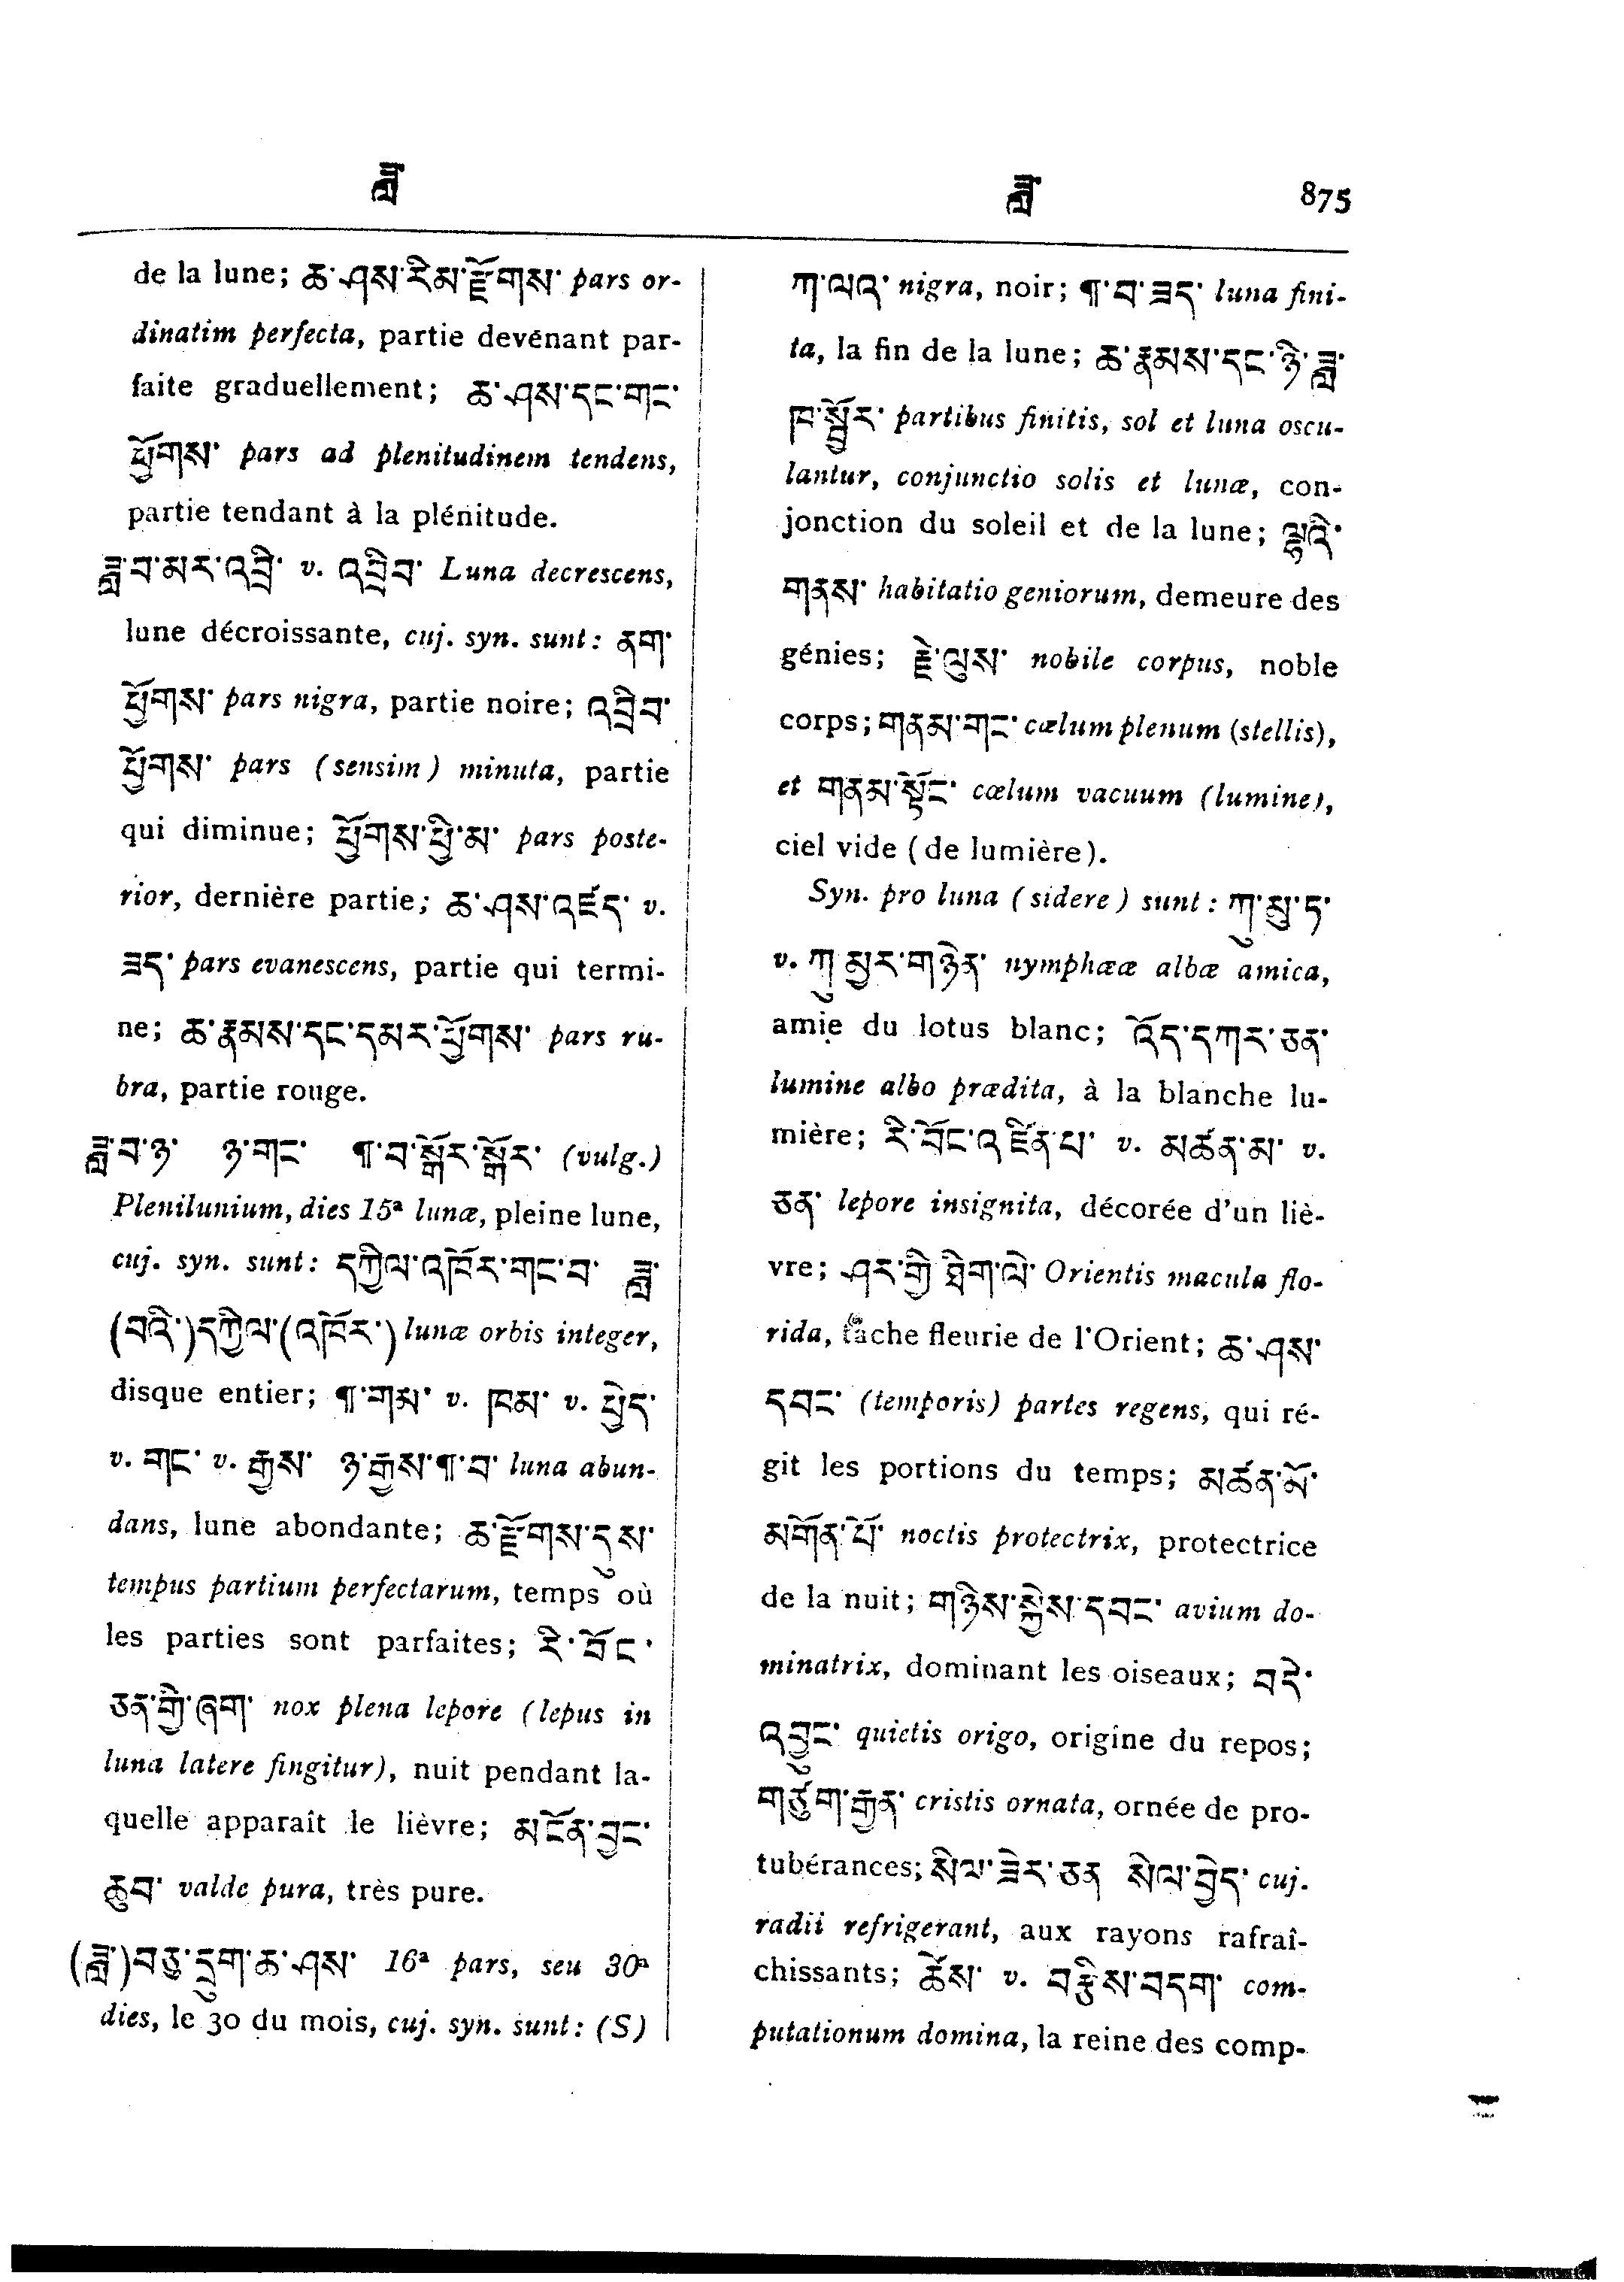 ཟླ་
ཟླ་ 875
de la lune; ཆ་ཤས་རིམ་རྫོགས་ pars or-
dinatim perfecta, partie devenant par-
faite graduellement; ཆ་ཤས་དང་གང་
ཕྱོགས་ pars ad plenitudinem tendens,
partie tendant à la plénitude.
ཟླ་བ་མར་འབྲི་ v. འབྲིབ་ Luna decrescens,
lune décroissante, cuj. syn. sunt: ནག་
ཕྱོགས་ pars nigra, partie noire; འབྲིབ་
ཕྱོགས་ pars (sensim) minuta, partie
qui diminue; ཕྱོགས་ཕྱི་མ་ pars poste-
rior, dernière partie; ཆ་ཤས་འཛད་ v.
ཟད་ pars evanescens, partie qui termi-
ne; ཆ་རྣམས་དང་དམར་ཕྱོགས་ pars ru-
bra, partie rouge.
ཟླ་བ་ཉ་ ཉ་གང་ ¶་བ་སྒོར་སྒོར་ (vulg.)
Plenilunium, dies 15ª lunæ, pleine lune,
cuj. syn. sunt: དཀྱིལ་འཁོར་གང་བ་ ཟླ་
(བའི་)དཀྱིལ་(འཁོར་) lunæ orbis integer,
disque entier; ¶་གམ་ v. ཁམ་ v. ཕྱེད་
v. གང་ v. རྒྱས་ ཉ་རྒྱས་¶་བ་ luna abun-
dans, lune abondante; ཆ་རྫོགས་དུས་
tempus partium perfectarum, temps où
les parties sont parfaites; རི་བོང་
ཅན་གྱི་ཞག་ nox plena lepore (lepus in
luna latere fingitur), nuit pendant la-
quelle apparaît le lièvre; མངོན་བྱང་
ཆུབ་ valde pura, très pure.
(ཟླ་)བཅུ་དྲུག་ཆ་ཤས་ 16ª pars, seu 30ª
dies, le 30 du mois, cuj. syn. sunt: (S)
ཀ་ལའ་ nigra, noir; ¶་བ་ཟད་ luna fini-
ta, la fin de la lune; ཆ་རྣམས་དང་ཉི་ཟླ་
ཁ་སྦྱོར་ partibus finitis, sol et luna oscu-
lantur, conjunctio solis et lunæ, con-
jonction du soleil et de la lune; ལྷའི་
གནས་ habitatio geniorum, demeure des
génies; རྗེ་ལུས་ nobile corpus, noble
corps; གནམ་གང་ cælum plenum (stellis),
et གནམ་སྟོང་ cælum vacuum (lumine),
ciel vide (de lumière).
Syn. pro luna (sidere) sunt: ཀུ་མུ་ད་
v. ཀུ མྱར་གཉེན་ nymphææ albæ amica,
amie du lotus blanc; འོད་དཀར་ཅན་
lumine albo prædita, à la blanche lu-
mière; རི་བོང་འཛིན་པ་ v. མཚན་མ་ v.
ཅན་ lepore insignita, décorée d'un liè-
vre; ཤར་གྱི་ཐིག་ལེ་ Orientis macula flo-
rida, tache fleurie de l'Orient; ཆ་ཤས་
དབང་ (temporis) partes regens, qui ré-
git les portions du temps; མཚན་མོ་
མགོན་པོ་ noctis protectrix, protectrice
de la nuit; གཉིས་སྐྱེས་དབང་ avium do-
minatrix, dominant les oiseaux; བདེ་
འབྱུང་ quietis origo, origine du repos;
གཙུག་རྒྱན་ cristis ornata, ornée de pro-
tubérances; སིལ་ཟེར་ཅན སེལ་བྱེད་ cuj.
radii refrigerant, aux rayons rafraî-
chissants; ཚེས་ v. བརྩིས་བདག་ com-
putationum domina, la reine des comp-